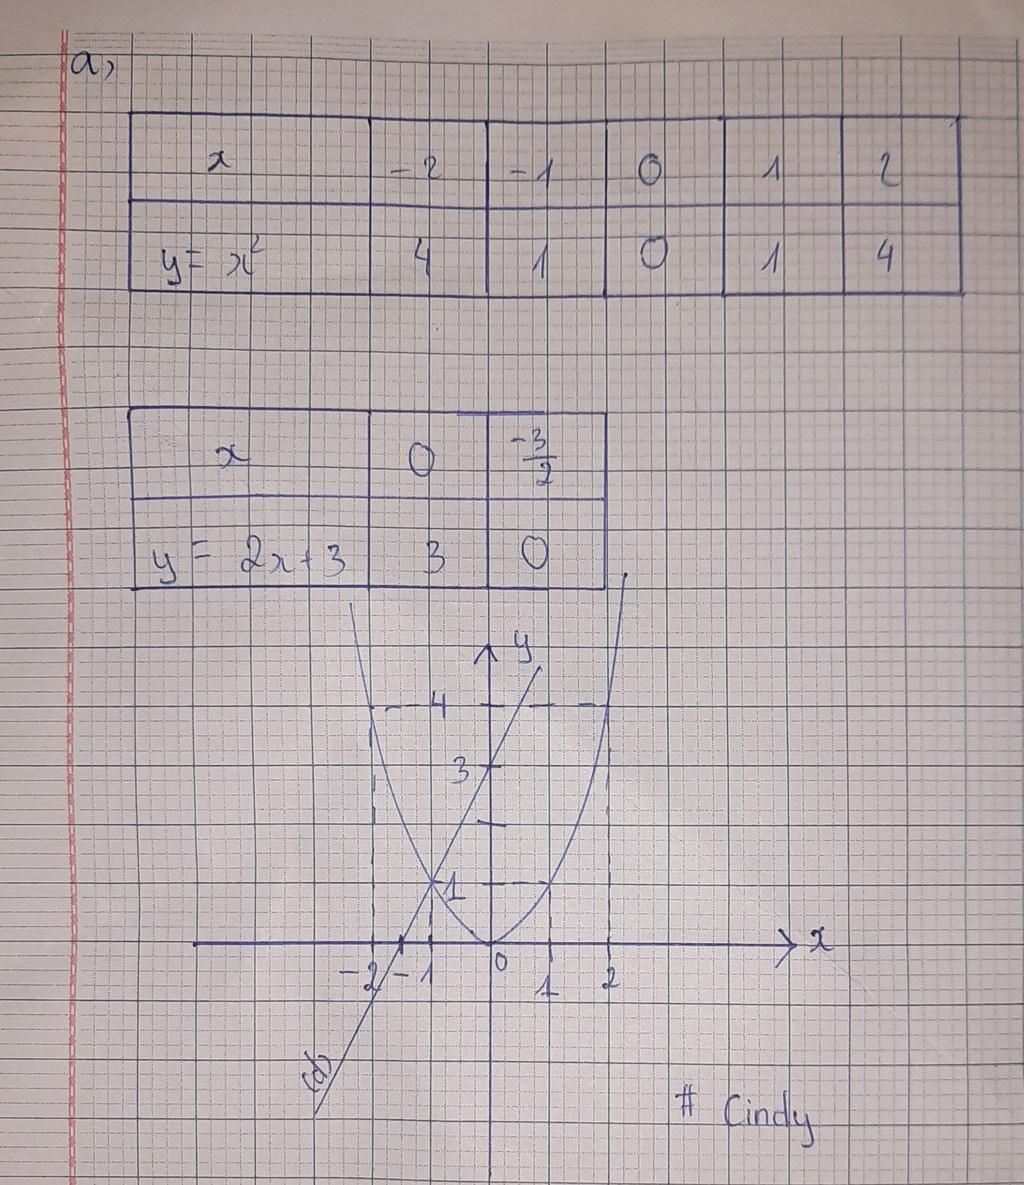 a,
x -2 -1 0 1 2
y = x² 4 1 0 1 4
x 0 -3/2
y = 2x+3 3 0
y
4
3
1
x
-2 -1 0 1 2
(d)
# Cindy